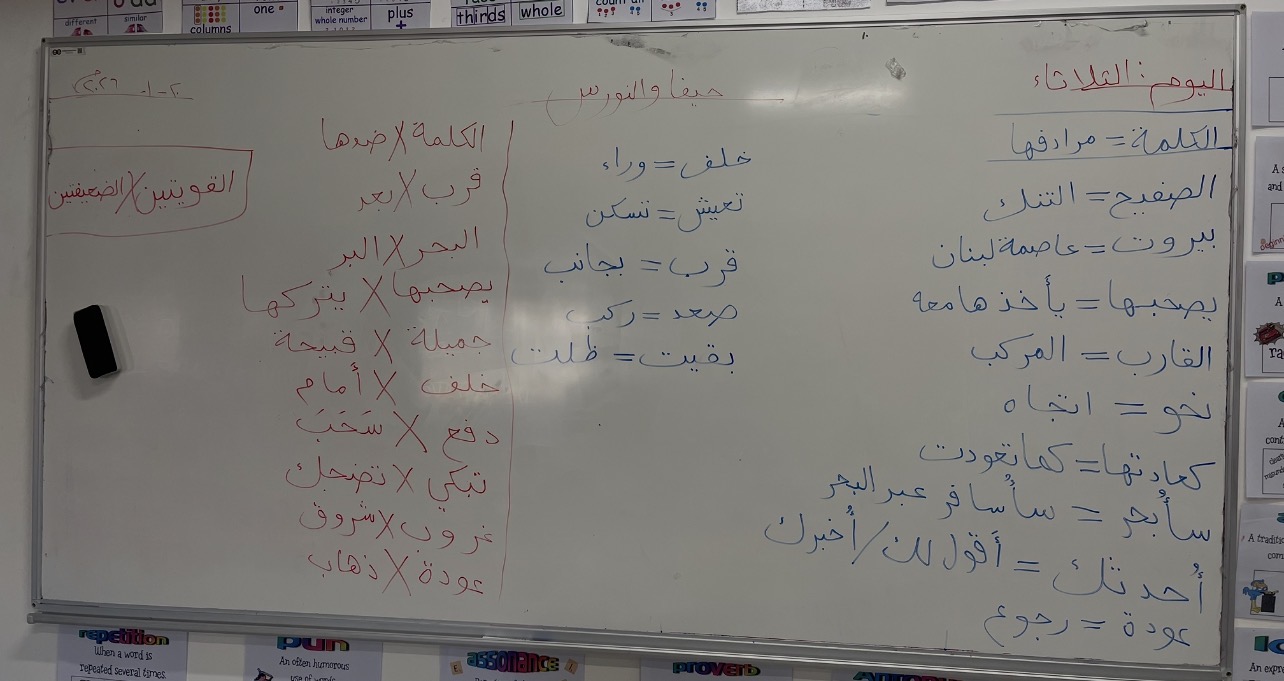 different
similar
columns
one
integer
whole number
plus
+
thirds
whole
اليوم: الثلاثاء
حيفا والنورس
الكلمة = مرادفها
الصفيح = التنك
بيروت = عاصمة لبنان
يصحبها = يأخذها معه
القارب = المركب
نحو = اتجاه
كعادتها = كما تعودت
سأُبحر = سأسافر عبر البحر
أُحدثك = أقول لك / أُخبرك
عودة = رجوع
خلف = وراء
تعيش = تسكن
قرب = بجانب
صعد = ركب
بقيت = ظلت
الكلمة X ضدها
قرب X بعد
البحر X البر
يصحبها X يتركها
جميلة X قبيحة
خلف X أمام
دفع X سَحَبَ
تبكي X تضحك
غروب X شروق
عودة X ذهاب
القويتين X الضعيفتين
repetition
When a word is
repeated several times.
pun
An often humorous
use of words
assonance
proverb
A traditi
com
An expre